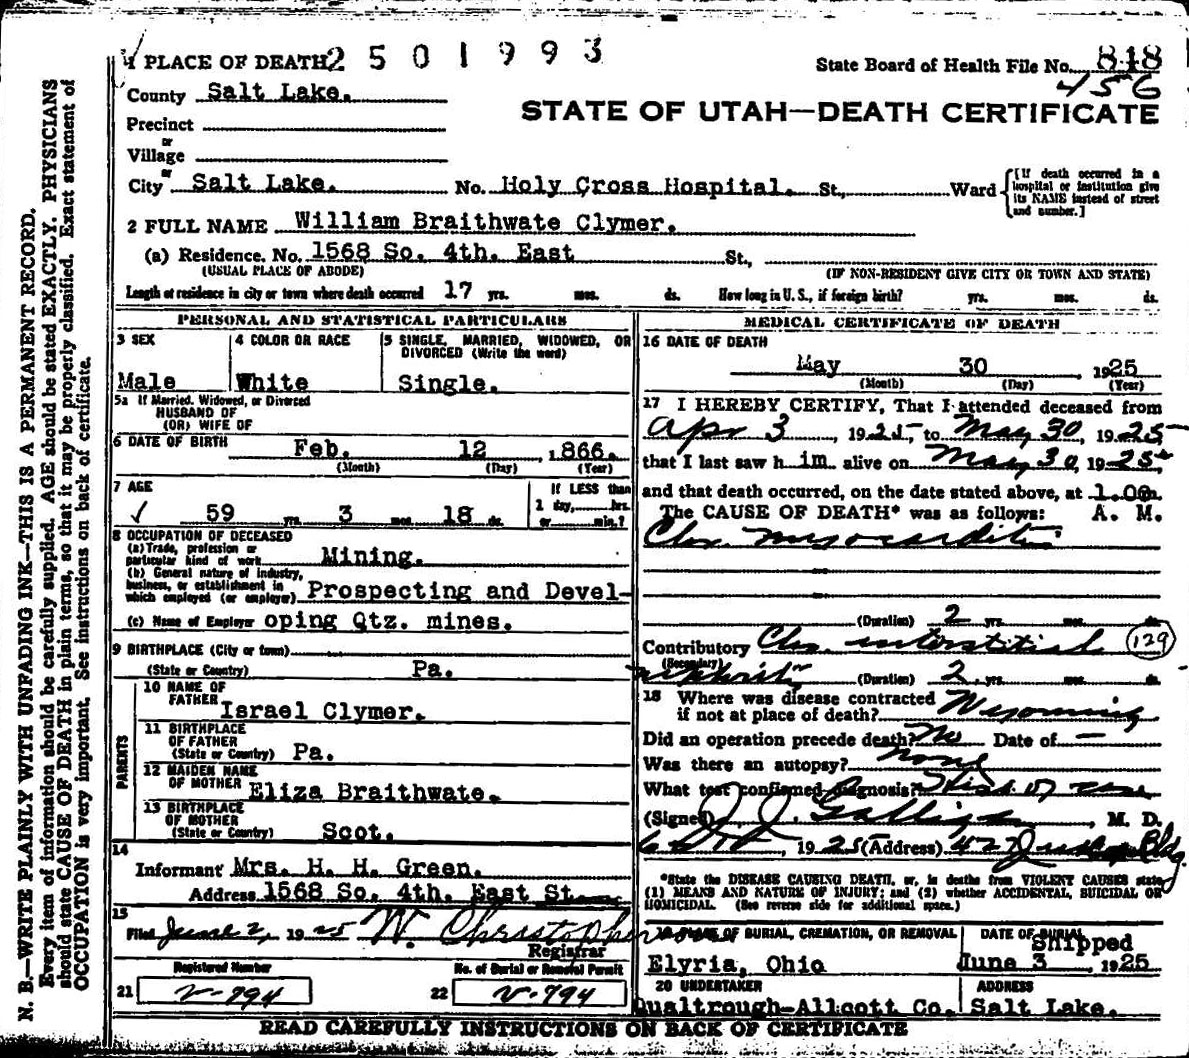 1 PLACE OF DEATH 2501993
State Board of Health File No. 848
456
County Salt Lake.
STATE OF UTAH—DEATH CERTIFICATE
Precinct
or
Village
or
City Salt Lake. No. Holy Cross Hospital. St., Ward
[If death occurred in a hospital or institution give its NAME instead of street and number.]
2 FULL NAME William Braithwate Clymer.
(a) Residence. No. 1568 So. 4th. East St.,
(USUAL PLACE OF ABODE) (IF NON-RESIDENT GIVE CITY OR TOWN AND STATE)
Length of residence in city or town where death occurred 17 yrs. mos. ds. How long in U. S., if foreign birth? yrs. mos. ds.
PERSONAL AND STATISTICAL PARTICULARS
3 SEX
Male
4 COLOR OR RACE
White
5 SINGLE, MARRIED, WIDOWED, OR
DIVORCED (Write the word)
Single.
5a If Married, Widowed, or Divorced
HUSBAND OF
(OR) WIFE OF
6 DATE OF BIRTH Feb. 12 , 1866.
(Month) (Day) (Year)
7 AGE
59 yrs. 3 mos. 18 ds.
If LESS than
1 day, hrs.
or min.?
8 OCCUPATION OF DECEASED
(a) Trade, profession or
particular kind of work Mining.
(b) General nature of industry,
business, or establishment in
which employed (or employer) Prospecting and Devel-
(c) Name of Employer oping Qtz. mines.
9 BIRTHPLACE (City or town)
(State or Country) Pa.
PARENTS
10 NAME OF
FATHER Israel Clymer.
11 BIRTHPLACE
OF FATHER
(State or Country) Pa.
12 MAIDEN NAME
OF MOTHER Eliza Braithwate.
13 BIRTHPLACE
OF MOTHER
(State or Country) Scot.
14
Informant Mrs. H. H. Green.
Address 1568 So. 4th. East St.
15
Filed June 2, 1925 W. Christopherson
Registrar
Registered Number
21 V-794
No. of Burial or Removal Permit
22 V-794
MEDICAL CERTIFICATE OF DEATH
16 DATE OF DEATH
May 30 , 1925
(Month) (Day) (Year)
17 I HEREBY CERTIFY, That I attended deceased from
Apr 3, 1925, to May 30, 1925
that I last saw him alive on May 30, 1925,
and that death occurred, on the date stated above, at 1.00 m.
The CAUSE OF DEATH* was as follows: A. M.
Chr. myocarditis
(Duration) 2 yrs. mos. ds.
Contributory Chr. interstitial 129
(Secondary)
nephritis (Duration) 2 yrs. mos. ds.
18 Where was disease contracted
if not at place of death? Wyoming
Did an operation precede death? No Date of —
Was there an autopsy? none
What test confirmed diagnosis? Hist of case
(Signed) J. J. Galligan, M. D.
1925 (Address) 427 Judge Bldg.
*State the DISEASE CAUSING DEATH, or, in deaths from VIOLENT CAUSES state
(1) MEANS AND NATURE OF INJURY; and (2) whether ACCIDENTAL, SUICIDAL OR
HOMICIDAL. (See reverse side for additional space.)
19 PLACE OF BURIAL, CREMATION, OR REMOVAL
Elyria, Ohio
DATE OF BURIAL
Shipped
June 3, 1925
20 UNDERTAKER
Qualtrough-Allcott Co.
ADDRESS
Salt Lake.
READ CAREFULLY INSTRUCTIONS ON BACK OF CERTIFICATE
N. B.—WRITE PLAINLY WITH UNFADING INK—THIS IS A PERMANENT RECORD.
Every item of information should be carefully supplied. AGE should be stated EXACTLY. PHYSICIANS
should state CAUSE OF DEATH in plain terms, so that it may be properly classified. Exact statement of
OCCUPATION is very important. See instructions on back of certificate.